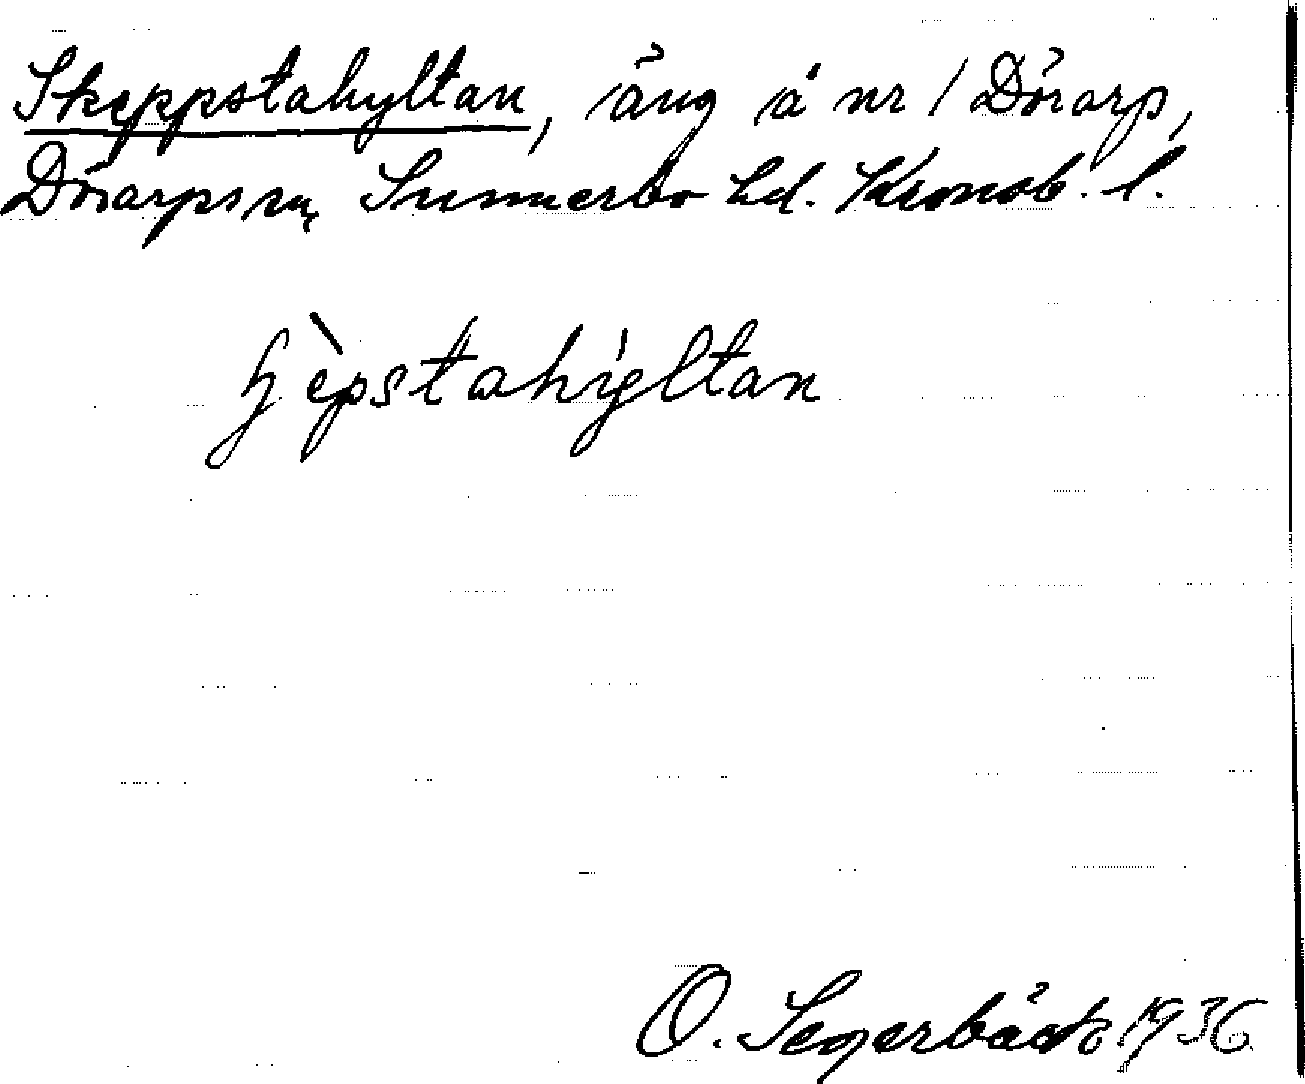 Skeppstahyltan, äng å nr 1 Dörarp,
Dörarps sn, Sunnerbo hd. Kronob. l.
ɧèpstahyltan
O. Segerbäck 1936